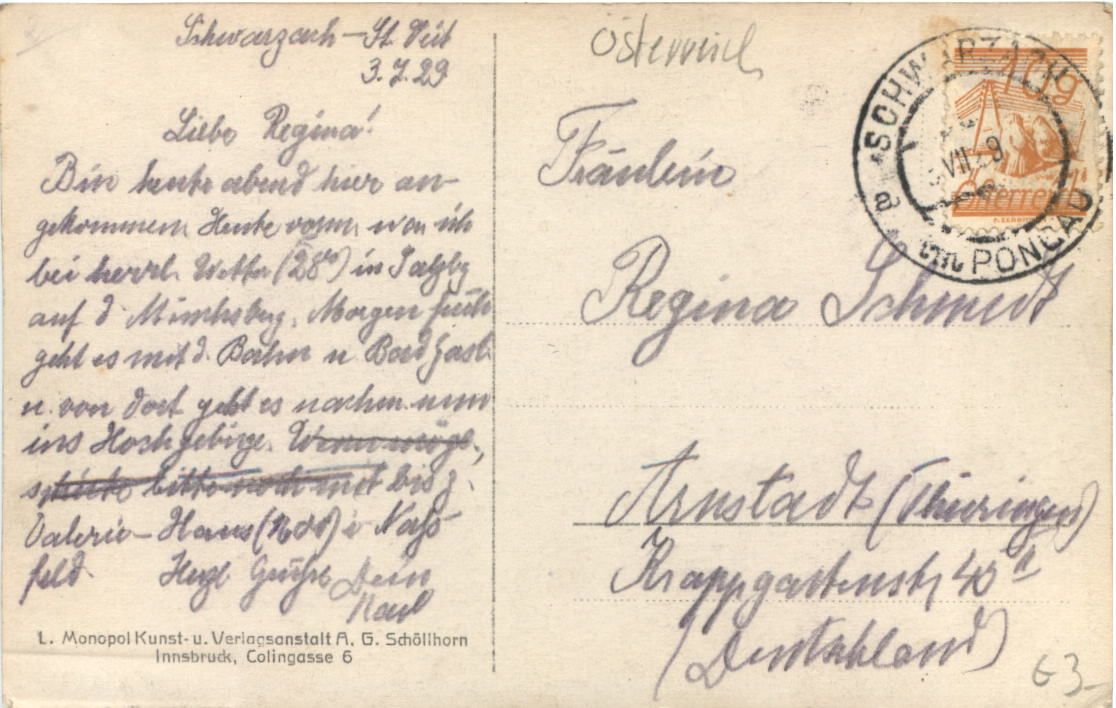 Schwarzach – St. Veit
3.7.29
Liebe Regina!
Bin heute abend hier an-
gekommen. Heute vorm. war ich
bei herrl. Wetter (28°) in Salzbg
auf d. Mönchsberg. Morgen früh
geht es mit d. Bahn n. Bad Gast.
u. von dort geht es nachm. nun
ins Hochgebirge. Wenn mögl.,
bitte noch mit bis z.
Valerie-Haus (1600) i. Naß-
feld. Herzl. Grüße Dein
Karl
L. Monopol Kunst- u. Verlagsanstalt A. G. Schöllhorn
Innsbruck, Colingasse 6
Österreich
10g
Österreich
SCHWARZACH
a
VII 29
im PONGAU
Fräulein
Regina Schmidt
Arnstadt (Thüringen)
Krappgartenstr. 40
(Deutschland)
G3-